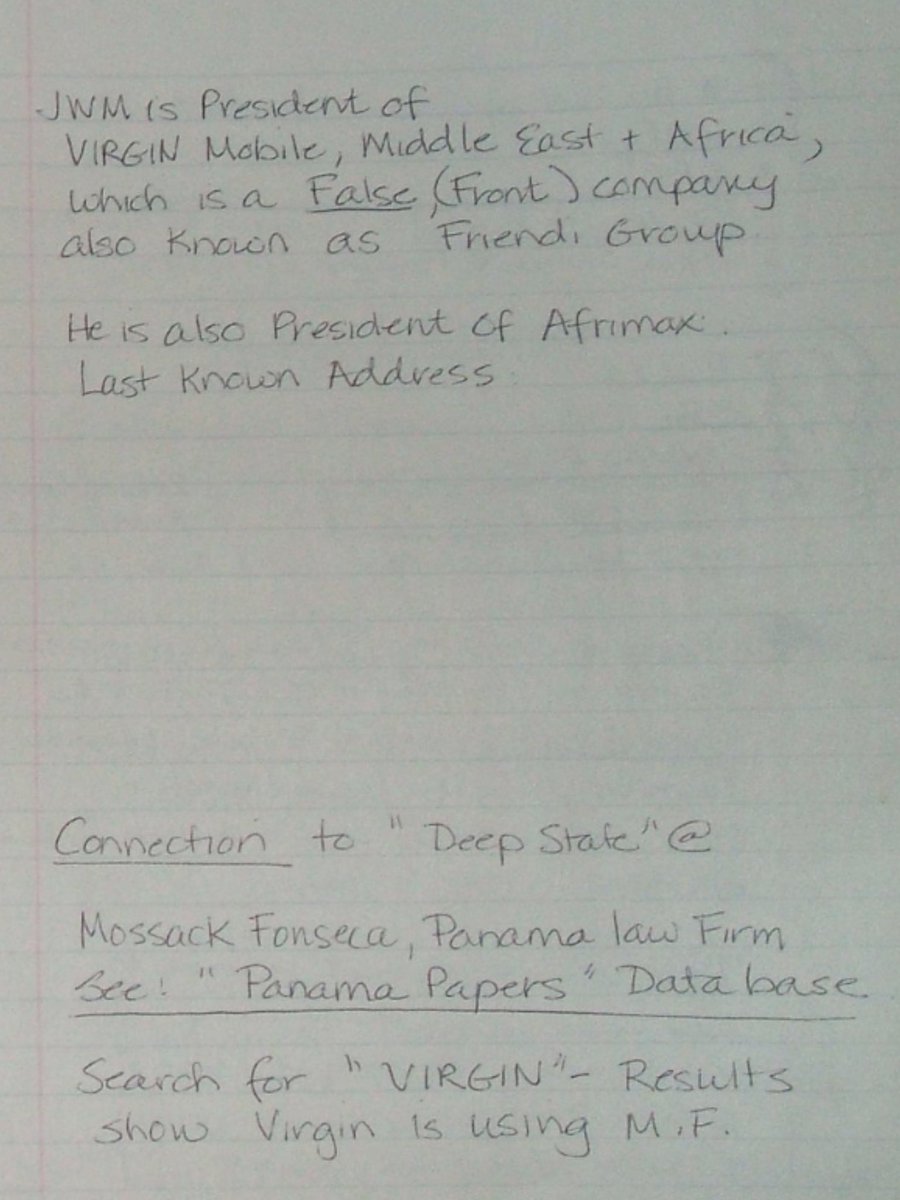 JWM is President of
VIRGIN Mobile, Middle East + Africa,
which is a False, (Front) company
also Known as Friendi Group
He is also President of Afrimax.
Last Known Address
Connection to "Deep State" @
Mossack Fonseca, Panama law Firm
See: "Panama Papers" Database
Search for "VIRGIN" - Results
show Virgin is using M.F.